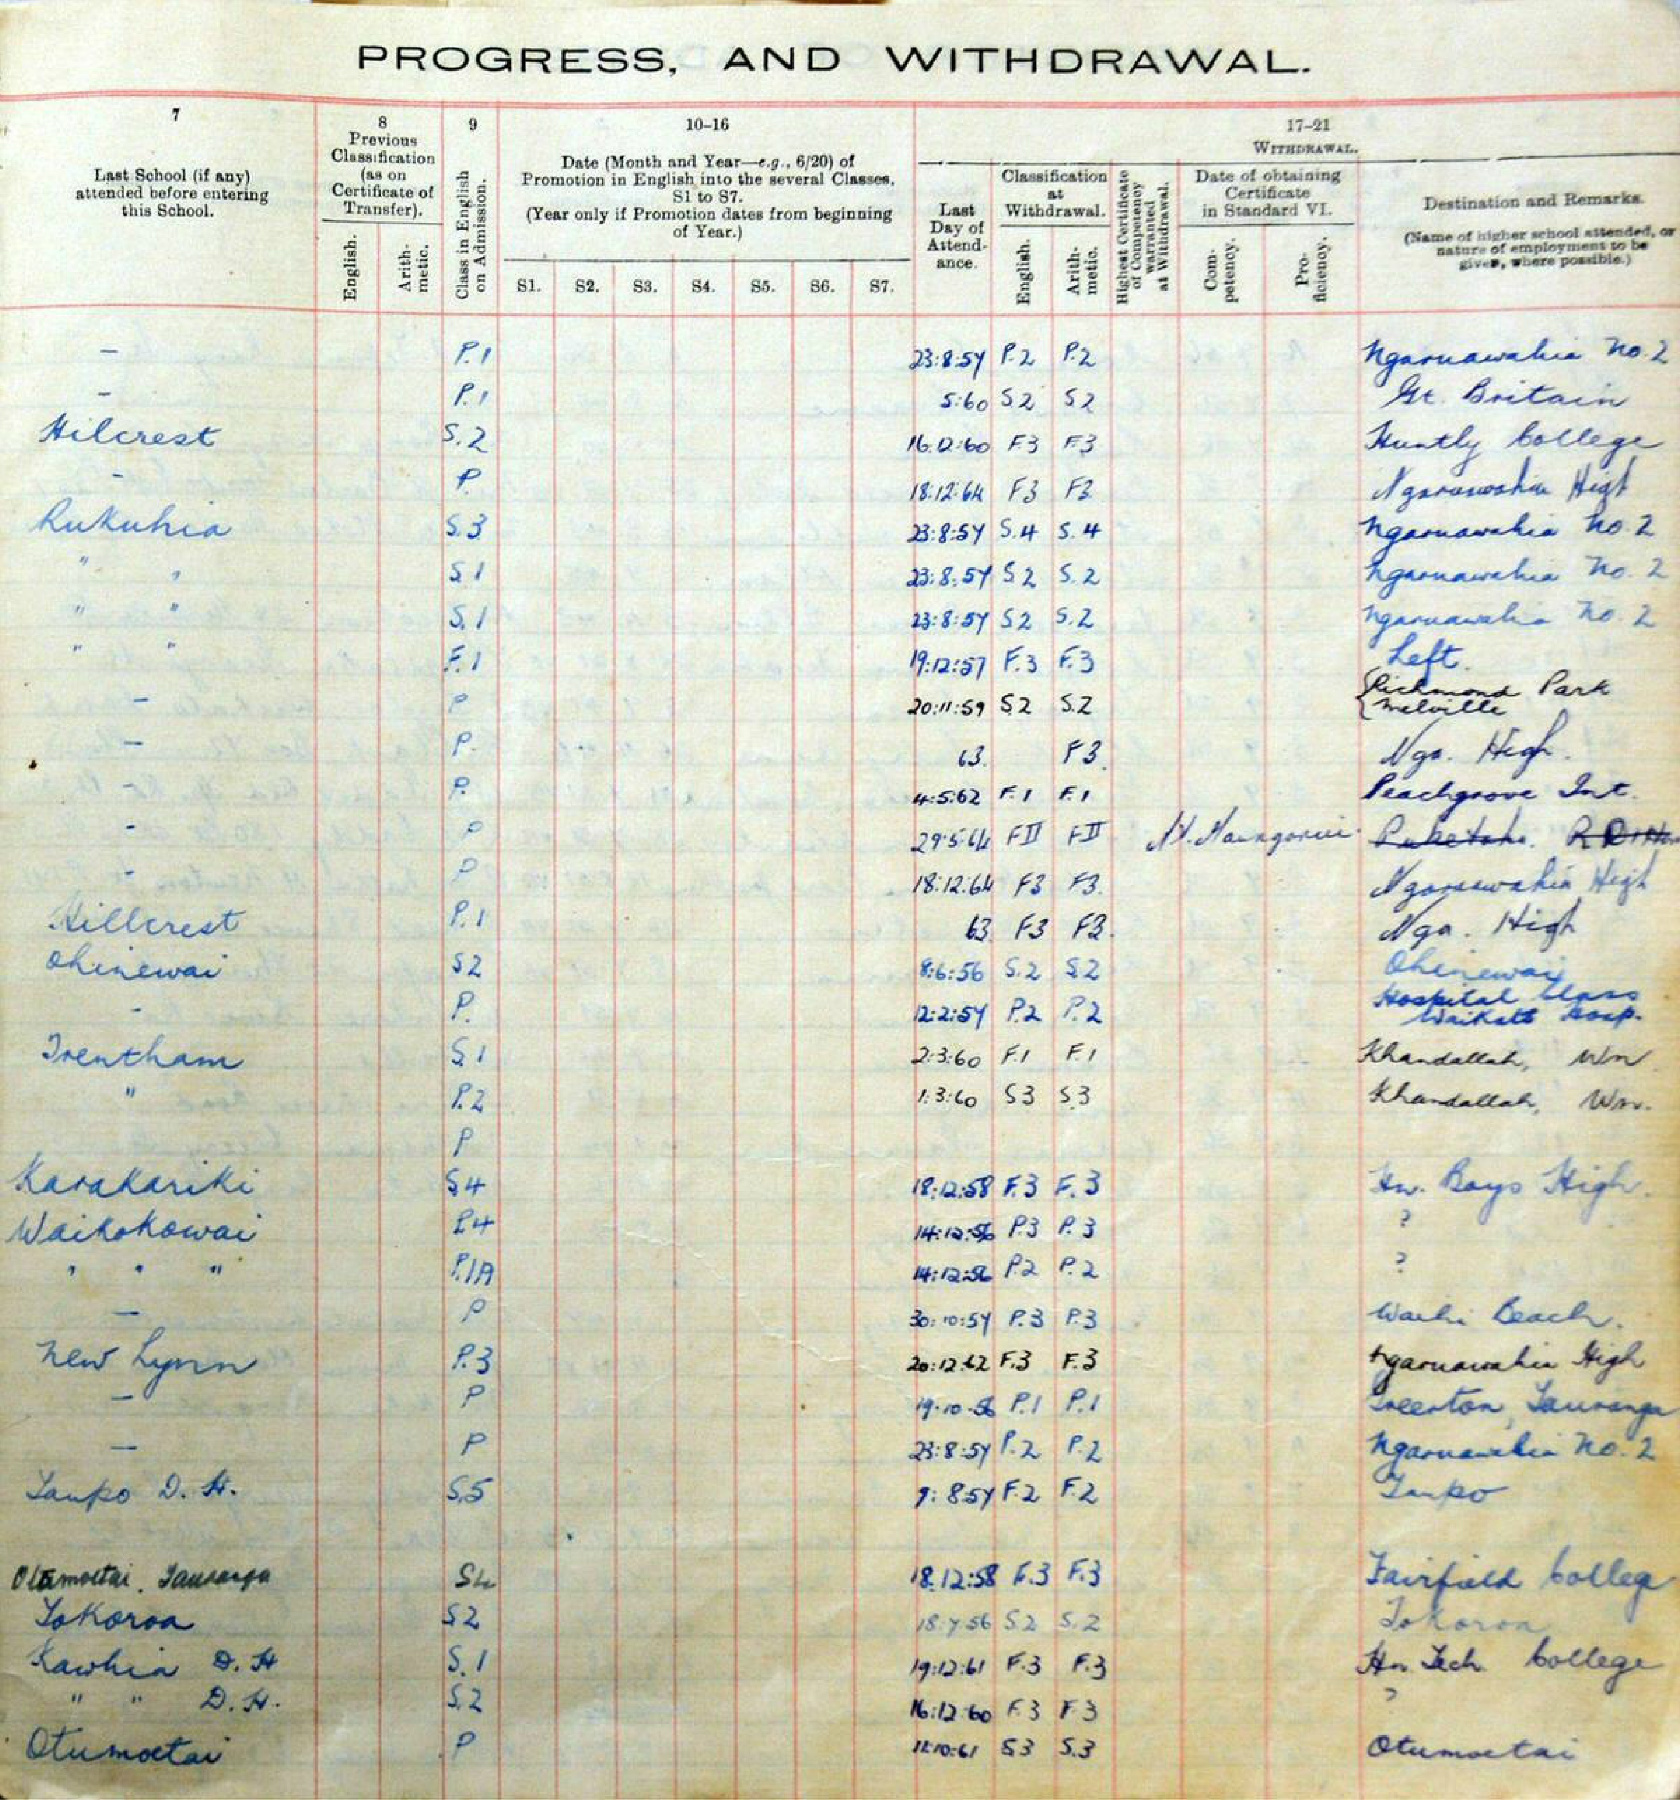 PROGRESS, AND WITHDRAWAL.
7
Last School (if any)
attended before entering
this School.
8
Previous
Classification
(as on
Certificate of
Transfer).
English.
Arith-
metic.
9
Class in English
on Admission.
10–16
Date (Month and Year—e.g., 6/20) of
Promotion in English into the several Classes,
S1 to S7.
(Year only if Promotion dates from beginning
of Year.)
S1. S2. S3. S4. S5. S6. S7.
17–21
WITHDRAWAL.
Last
Day of
Attend-
ance.
Classification
at
Withdrawal.
English.
Arith-
metic.
Highest Certificate
of Competency
warranted
at Withdrawal.
Date of obtaining
Certificate
in Standard VI.
Com-
petency.
Pro-
ficiency.
Destination and Remarks.
(Name of higher school attended, or
nature of employment to be
given, where possible.)
— P.1 23:8:57 P.2 P.2 Ngaruawahia No. 2
— P.1 5:60 S2 S2 Gt. Britain
Hilcrest S.2 16:12:60 F3 F3 Huntly College
- P. 18:12:64 F3 F3 Ngaruawahia High
Rukuhia S.3 23:8:57 S.4 S.4 Ngaruawahia No. 2
" " S.1 23:8:57 S2 S.2 Ngaruawahia No. 2
" " S.1 23:8:57 S2 S.2 Ngaruawahia No. 2
" " F.1 19:12:57 F.3 F.3 Left.
— P 20:11:59 S.2 S.2 { Richmond Park
Melville
— P. 63. F3. Nga. High.
- P. 4:5:62 F.1 F.1 Peachgrove Int.
- P 29:5:64 FII FII Mt. Maunganui Puketaha.
- P 18:12:64 F3 F3. Ngaruawahia High
Hillcrest P.1 63. F3 F3. Nga. High
Ohinewai S2 8:6:56 S.2 S2 Ohinewai
- P. 12:2:57 P.2 P.2 Hospital Class
Waikato Hosp.
Trentham S.1 2:3:60 F.1 F.1 Khandallah, Wn
" P.2 1:3:60 S3 S.3 Khandallah, Wn.
P
Karakariki S4 18:12:58 F.3 F.3 Hn. Boys High.
Waikokowai P4 14:12:56 P.3 P.3 ?
" " " P.1A 14:12:56 P2 P.2 ?
— P 30:10:57 P.3 P.3 Waihi Beach.
New Lynn P.3 20:12:62 F.3 F.3 Ngaruawahia High
— P 19:10:56 P.1 P.1 Greerton, Tauranga
— P 23:8:57 P.2 P.2 Ngaruawahia No. 2
Taupo D. H. S.5 9:8:57 F.2 F.2 Taupo
Otumoetai, Tauranga S4 18:12:58 F.3 F.3 Fairfield College
Tokoroa S2 18:7:56 S2 S.2 Tokoroa
Kawhia D. H S.1 19:12:61 F.3 F.3 Hn. Tech. College
" " D. H. S.2 16:12:60 F.3 F.3 ?
Otumoetai P 11:10:61 S3 S.3 Otumoetai